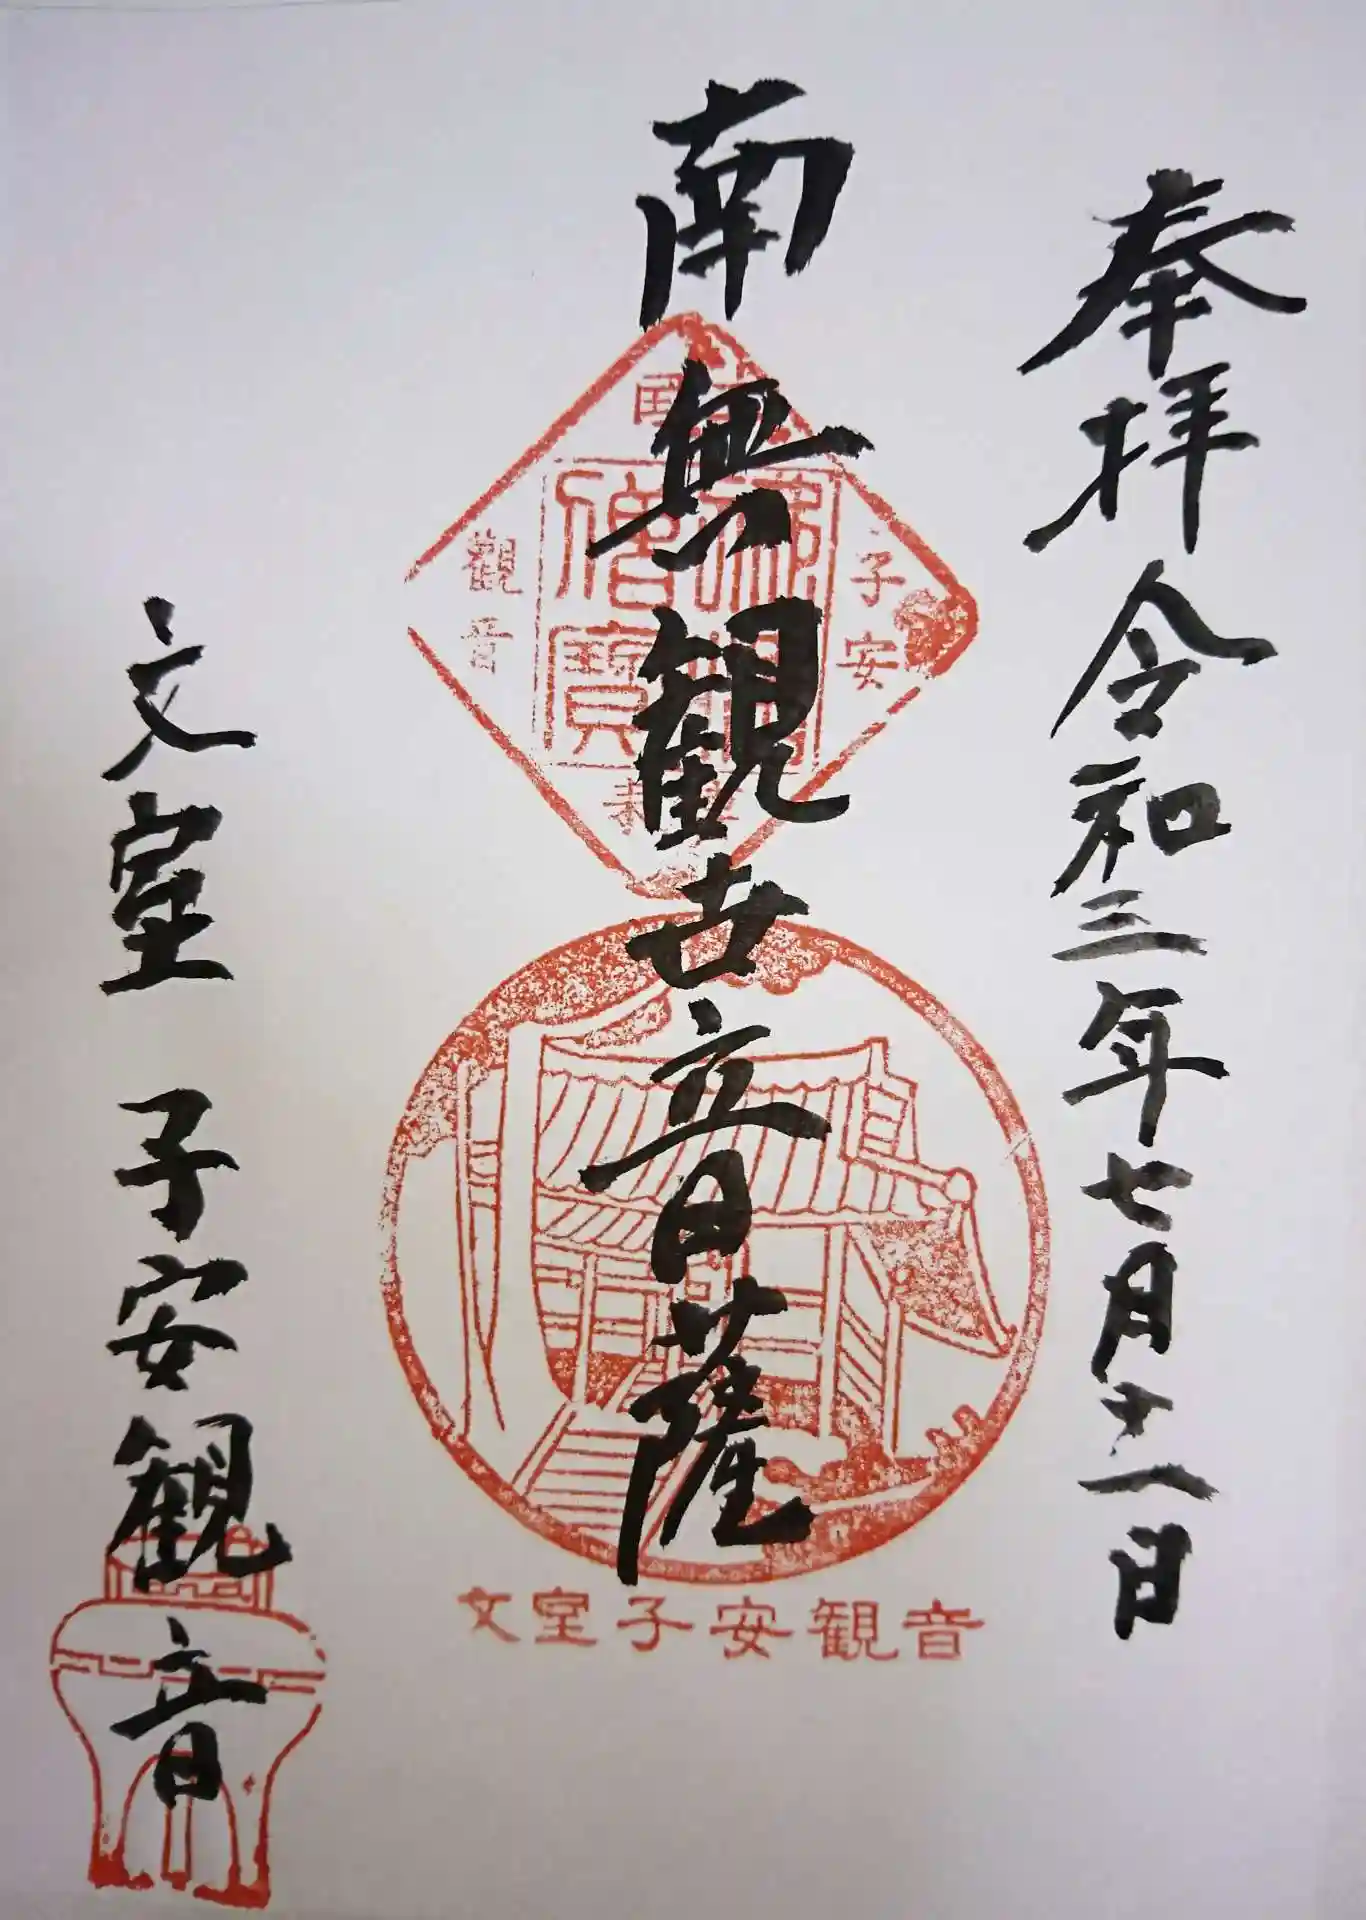 奉拝 令和三年七月十一日
南無観世音薩
文室 子安観音
子安
觀音
僧寶
文室子安観音